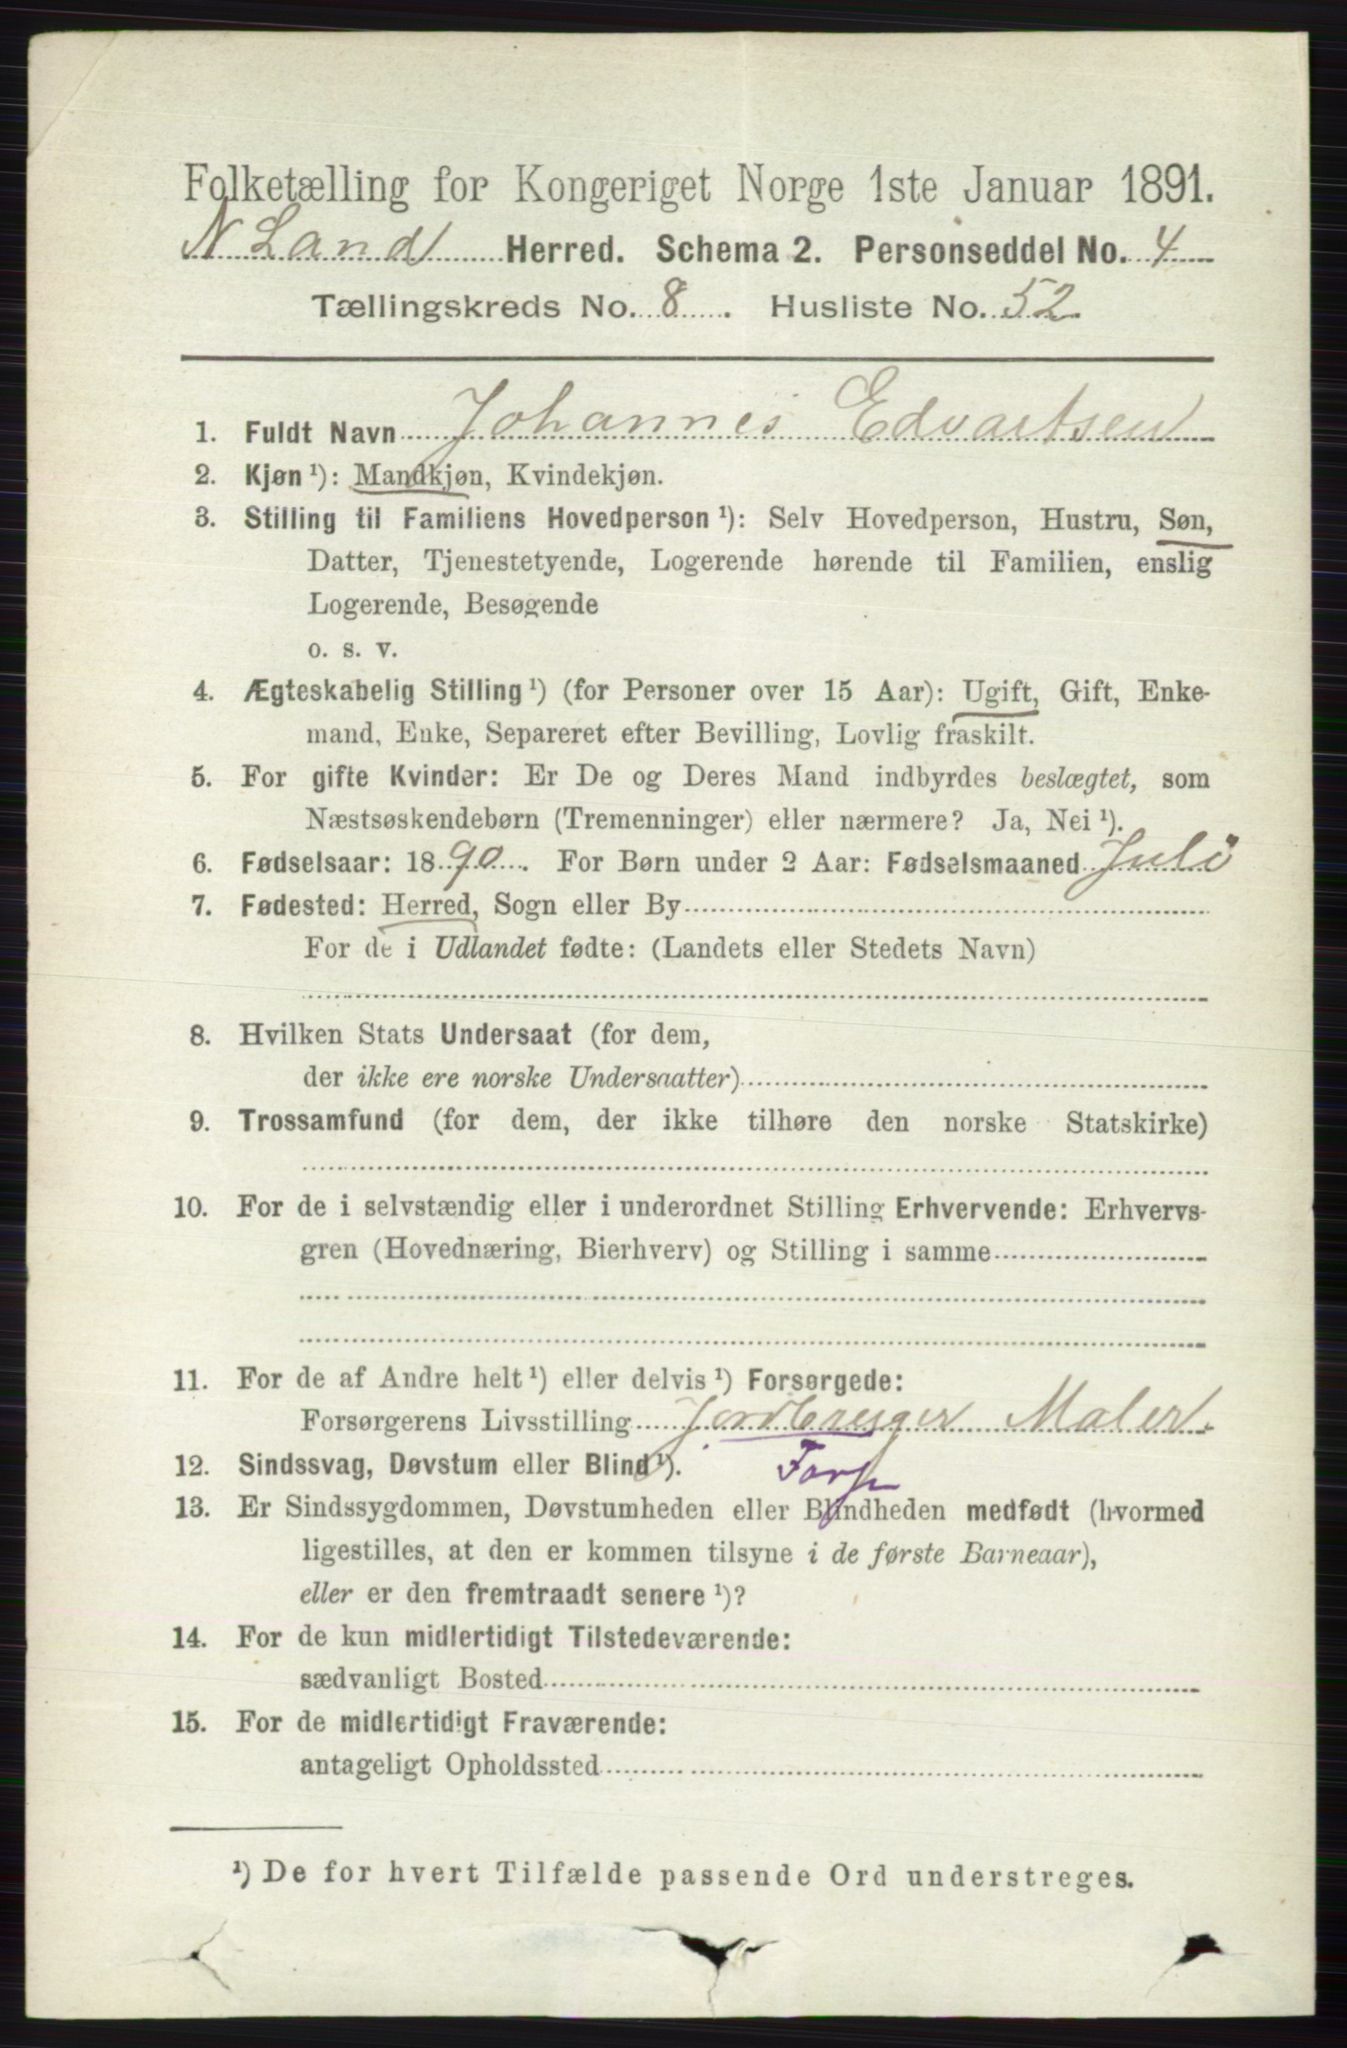 Folketælling for Kongeriget Norge 1ste Januar 1891.
N Land Herred. Schema 2. Personseddel No. 4
Tællingskreds No. 8. Husliste No. 52.
1. Fuldt Navn Johannes Edvartsen
2. Kjøn ¹): Mandkjøn, Kvindekjøn.
3. Stilling til Familiens Hovedperson ¹): Selv Hovedperson, Hustru, Søn,
Datter, Tjenestetyende, Logerende hørende til Familien, enslig
Logerende, Besøgende
o. s. v.
4. Ægteskabelig Stilling ¹) (for Personer over 15 Aar): Ugift, Gift, Enke-
mand, Enke, Separeret efter Bevilling, Lovlig fraskilt.
5. For gifte Kvinder: Er De og Deres Mand indbyrdes beslægtet, som
Næstsøskendebørn (Tremenninger) eller nærmere? Ja, Nei ¹).
6. Fødselsaar: 1890. For Børn under 2 Aar: Fødselsmaaned Juli
7. Fødested: Herred, Sogn eller By
For de i Udlandet fødte: (Landets eller Stedets Navn)
8. Hvilken Stats Undersaat (for dem,
der ikke ere norske Undersaatter)
9. Trossamfund (for dem, der ikke tilhøre den norske Statskirke)
10. For de i selvstændig eller i underordnet Stilling Erhvervende: Erhvervs-
gren (Hovednæring, Bierhverv) og Stilling i samme
11. For de af Andre helt ¹) eller delvis ¹) Forsørgede:
Forsørgerens Livsstilling Jordbruger Maler.
12. Sindssvag, Døvstum eller Blind ¹).
13. Er Sindssygdommen, Døvstumheden eller Blindheden medfødt (hvormed
ligestilles, at den er kommen tilsyne i de første Barneaar),
eller er den fremtraadt senere ¹)?
14. For de kun midlertidigt Tilstedeværende:
sædvanligt Bosted
15. For de midlertidigt Fraværende:
antageligt Opholdssted
¹) De for hvert Tilfælde passende Ord understreges.